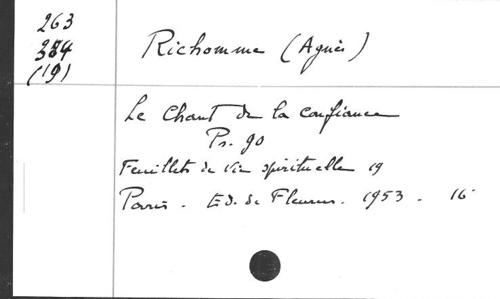 263
384
(19)
Richomme (Agnès)
Le Chant de la confiance
Ps. 90
Feuillets de vie spirituelle 19
Paris - Ed. de Fleurus. 1953 - 16